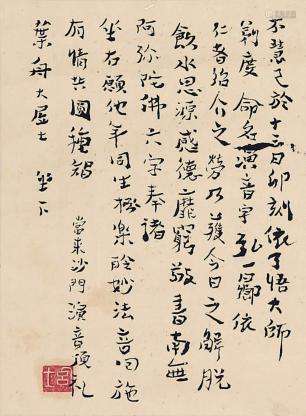 不慧已於十三日卯刻依了悟大師
剃度命名演音字弘一歸依
仁者紹介之勞乃獲今日之解脫
飲水思源感德靡窮敬書南無
阿弥陀佛六字奉諸
坐右願他年同生極樂聆妙法音回施
有情共圓種智
當來沙門演音頂礼
葉舟大居士 坐下